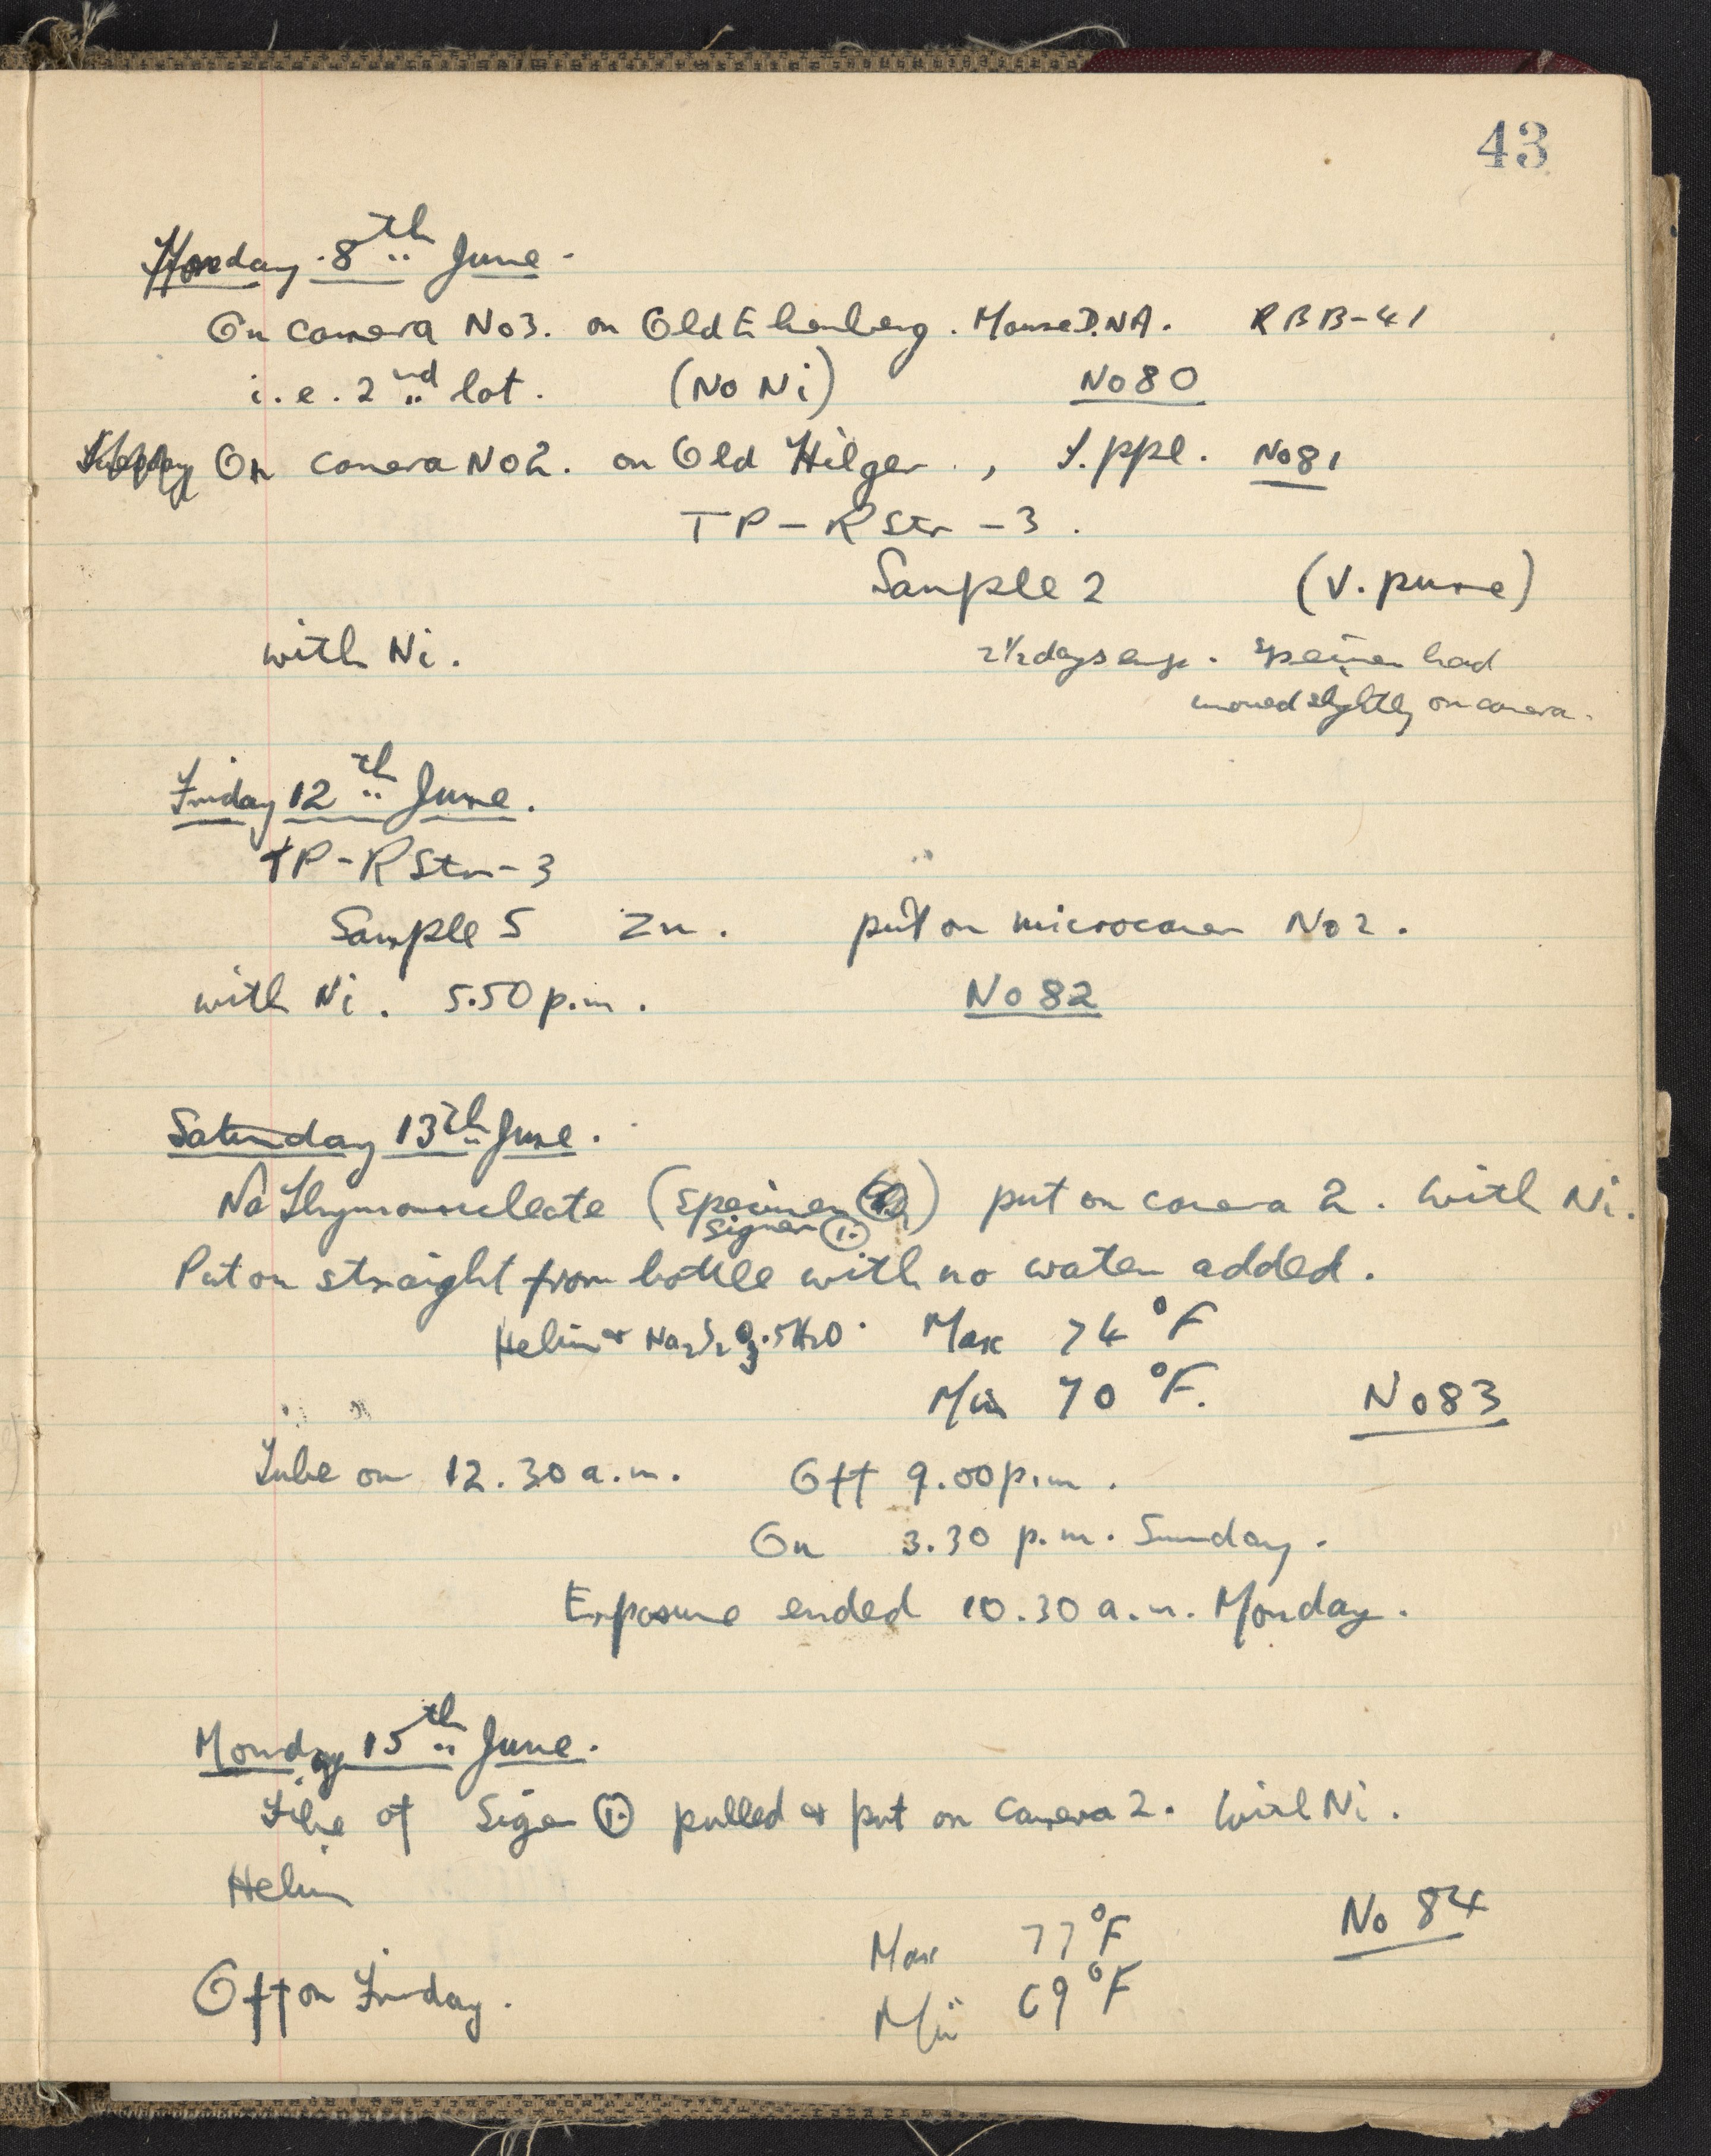 43
Monday 8th June.
On camera No 3. on Old Ehrenberg. Mouse D.N.A. RBB-41
i.e. 2nd lot. (No Ni) No 80
On camera No 2. on Old Hilger, T.ppl. No 81
TP-RStr-3.
Sample 2 (V. pure)
with Ni. 2½ days exp. specimen had
moved slightly on camera.
Friday 12th June.
TP-RStr-3
Sample 5 Zn. put on microcamera No 2.
with Ni. 5.50 p.m. No 82
Saturday 13th June.
Na Thymonucleate (specimen) put on camera 2. with Ni.
Signer ①
Put on straight from bottle with no water added.
Helium & Na2S2O3.5H2O. Max 74°F
Min 70°F. No 83
Tube on 12.30 a.m. Off 9.00 p.m.
On 3.30 p.m. Sunday.
Exposure ended 10.30 a.m. Monday.
Monday 15th June.
Fibre of Signer ① pulled & put on camera 2. with Ni.
Helium
No 84
Max 77°F
Off on Friday. Min 69°F